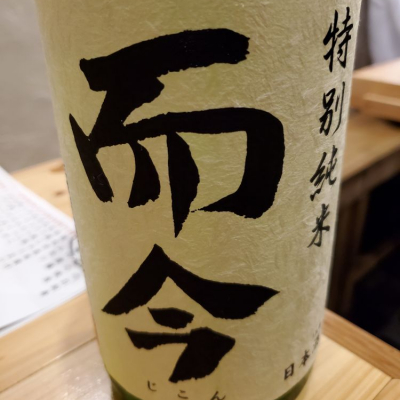 特別純米
而今
じこん
日本